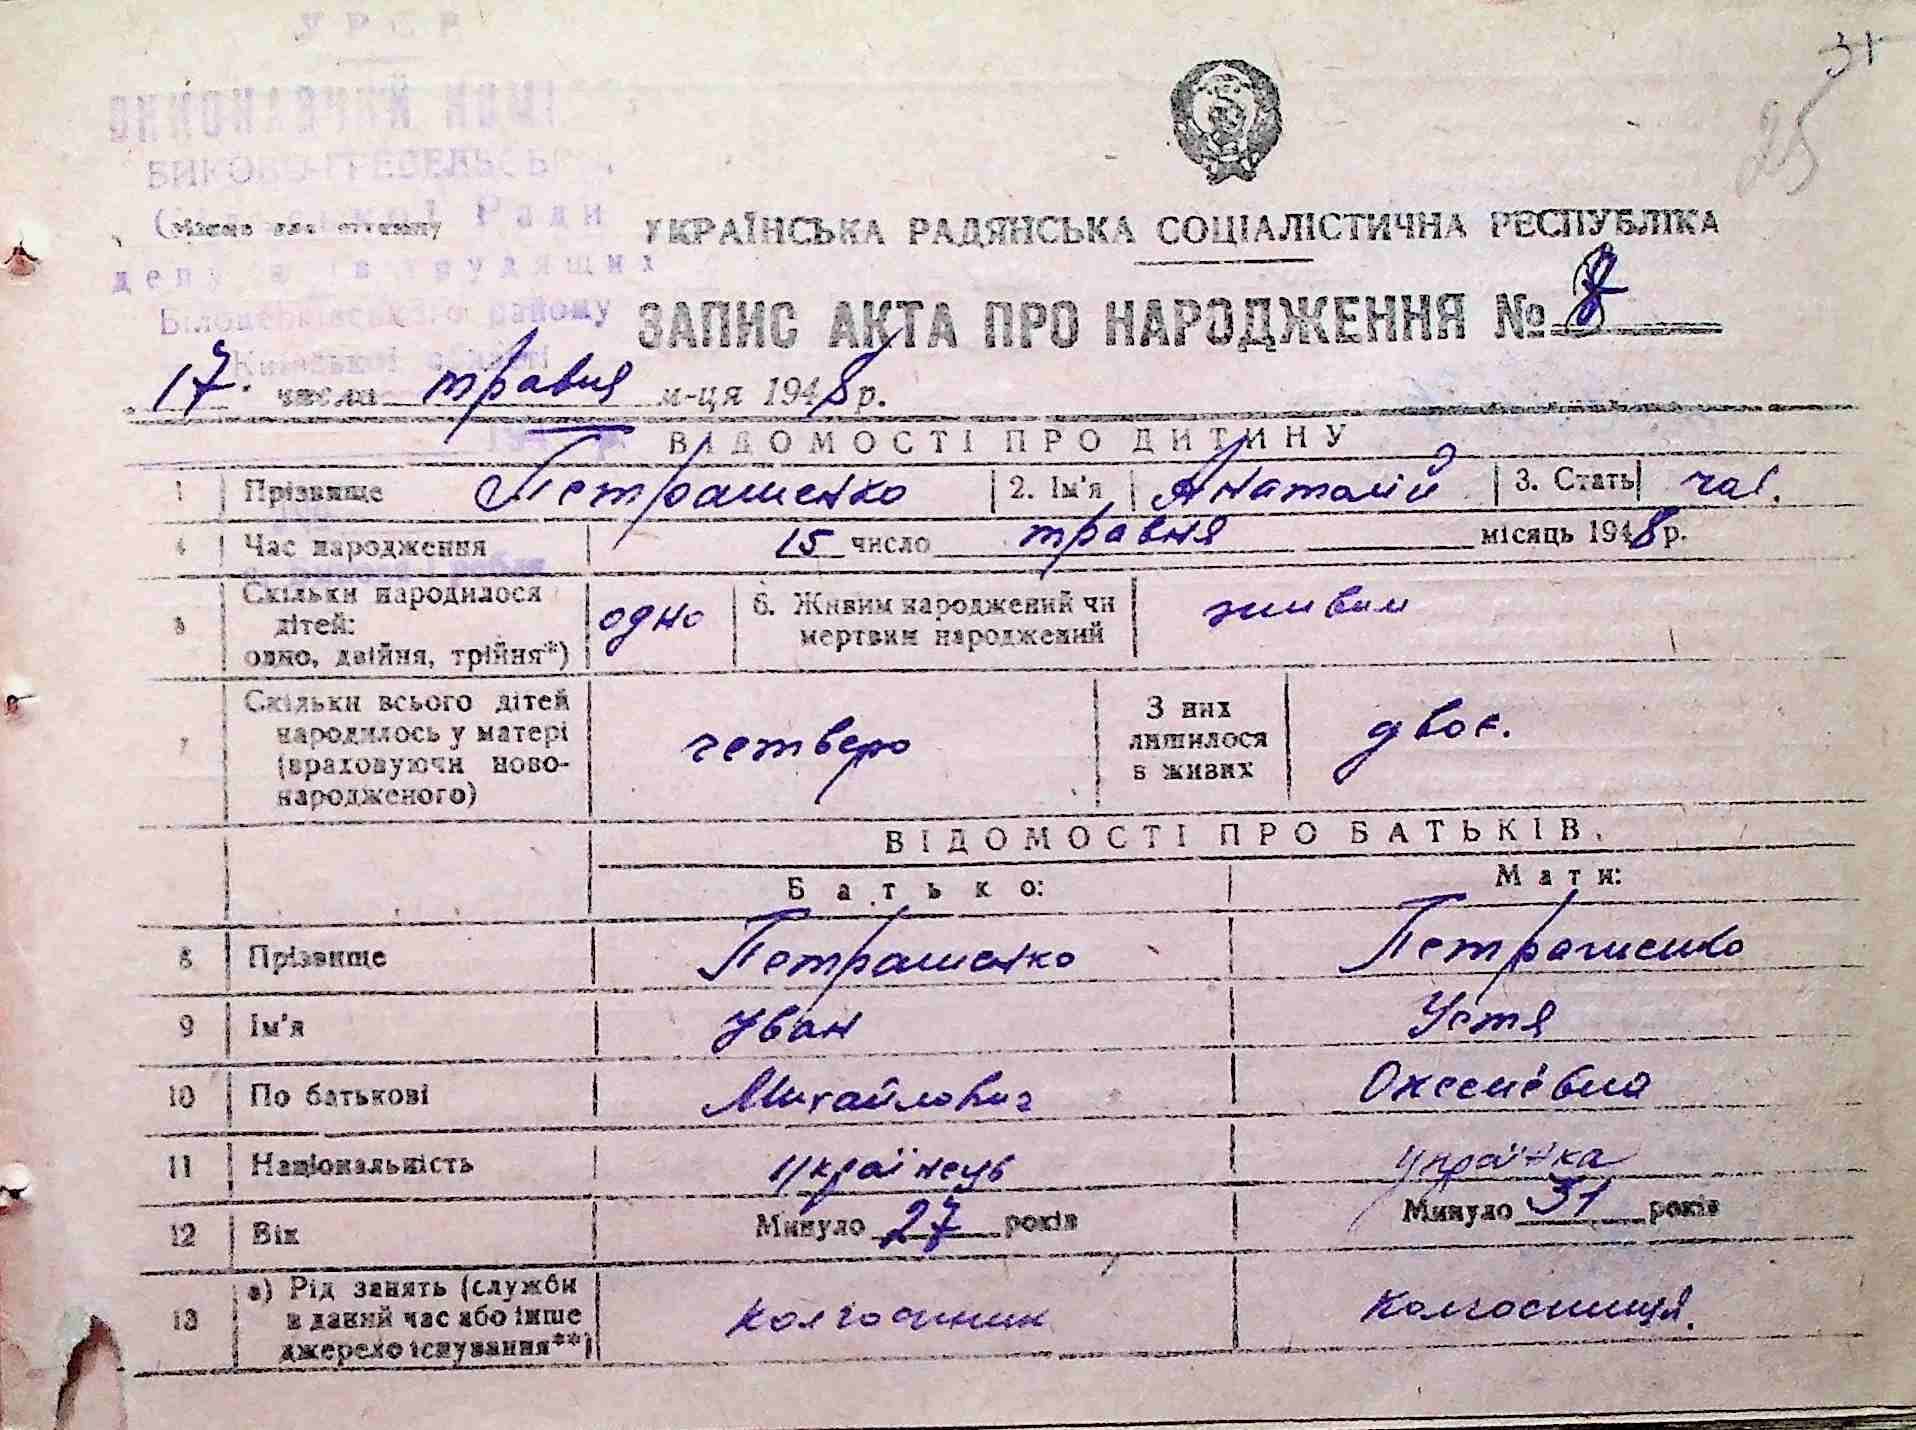 УРСР
31
ВИКОНАВЧИЙ КОМІ
25
БИКОВО-ГРЕБЕЛЬСЬ
Ради
УКРАЇНСЬКА РАДЯНСЬКА СОЦІАЛІСТИЧНА РЕСПУБЛІКА
трудящих
Білоцерківського району
ЗАПИС АКТА ПРО НАРОДЖЕННЯ № 8
Київської області
17. числа травня м-ця 1948 р.
ВІДОМОСТІ ПРО ДИТИНУ
1 Прізвище Петрашенко 2. Ім'я Анатолій 3. Стать чол.
4 Час народження 15 число травня місяць 1948 р.
5 Скільки народилося дітей: одно, двійня, трійня*) одно 6. Живим народжений чи мертвим народжений живим
7 Скільки всього дітей народилось у матері (враховуючи ново-народженого) четверо З них лишилося в живих двоє.
ВІДОМОСТІ ПРО БАТЬКІВ.
Батько: Мати:
8 Прізвище Петрашенко Петрашенко
9 Ім'я Іван Устя
10 По батькові Михайлович
11 Національність українець українка
12 Вік Минуло 27 років Минуло 31 років
13 а) Рід занять (служби в даний час або інше джерело існування**) колгоспник колгоспниця.